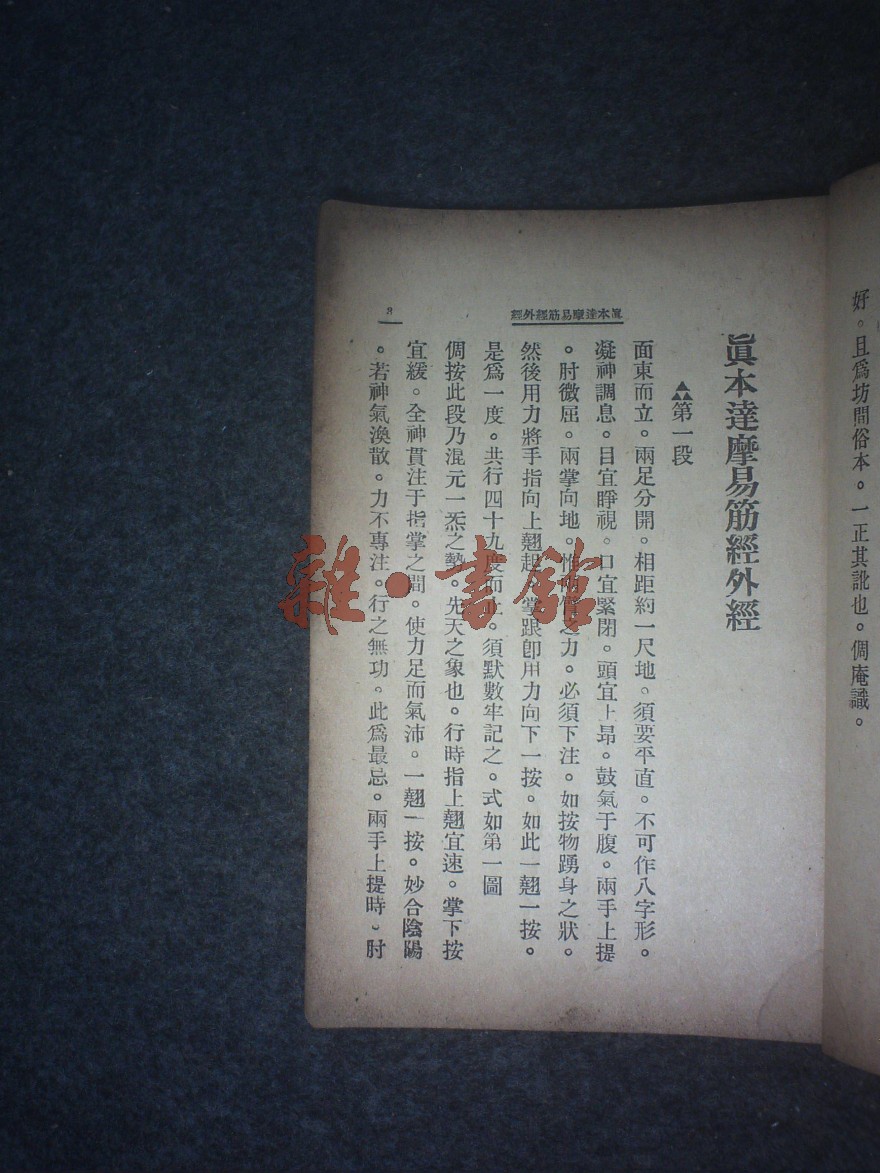 好。且爲坊間俗本。一正其訛也。倜庵識。
眞本達摩易筋經外經
▲▲▲第一段
面東而立。兩足分開。相距約一尺地。須要平直。不可作八字形。
凝神調息。目宜睜視。口宜緊閉。頭宜上昂。鼓氣于腹。兩手上提
。肘微屈。兩掌向地。惟兩臂之力。必須下注。如按物踴身之狀。
然後用力將手指向上翹起。掌跟卽用力向下一按。如此一翹一按。
是爲一度。共行四十九度而止。須默數牢記之。式如第一圖
倜按此段乃混元一炁之勢。先天之象也。行時指上翹宜速。掌下按
宜緩。全神貫注于指掌之間。使力足而氣沛。一翹一按。妙合陰陽
。若神氣渙散。力不專注。行之無功。此爲最忌。兩手上提時。肘
眞本達摩易筋經外經
3
雜·書館